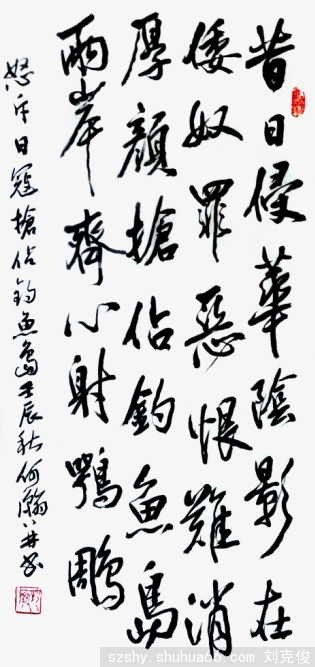 昔日侵華陰影在
倭奴罪惡恨難消
厚顏搶佔釣魚島
兩岸齊心射鶚鵰
怒斥日寇搶佔釣魚島壬辰秋何瀚并书
szshy.shuhua66.com 刘克俊